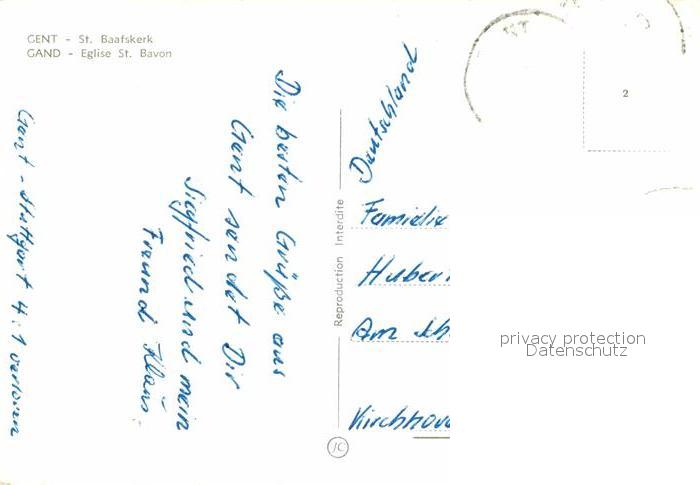 GENT - St. Baafskerk
GAND - Eglise St. Bavon
Die besten Grüße aus
Gent sendet Dir
Siegfried und mein
Freund Klaus.
Gent - Stuttgart 4:1 verloren
Reproduction Interdite
JC
2
Deutschland
Familie
Huber
Am
Kirchhov
privacy protection
Datenschutz